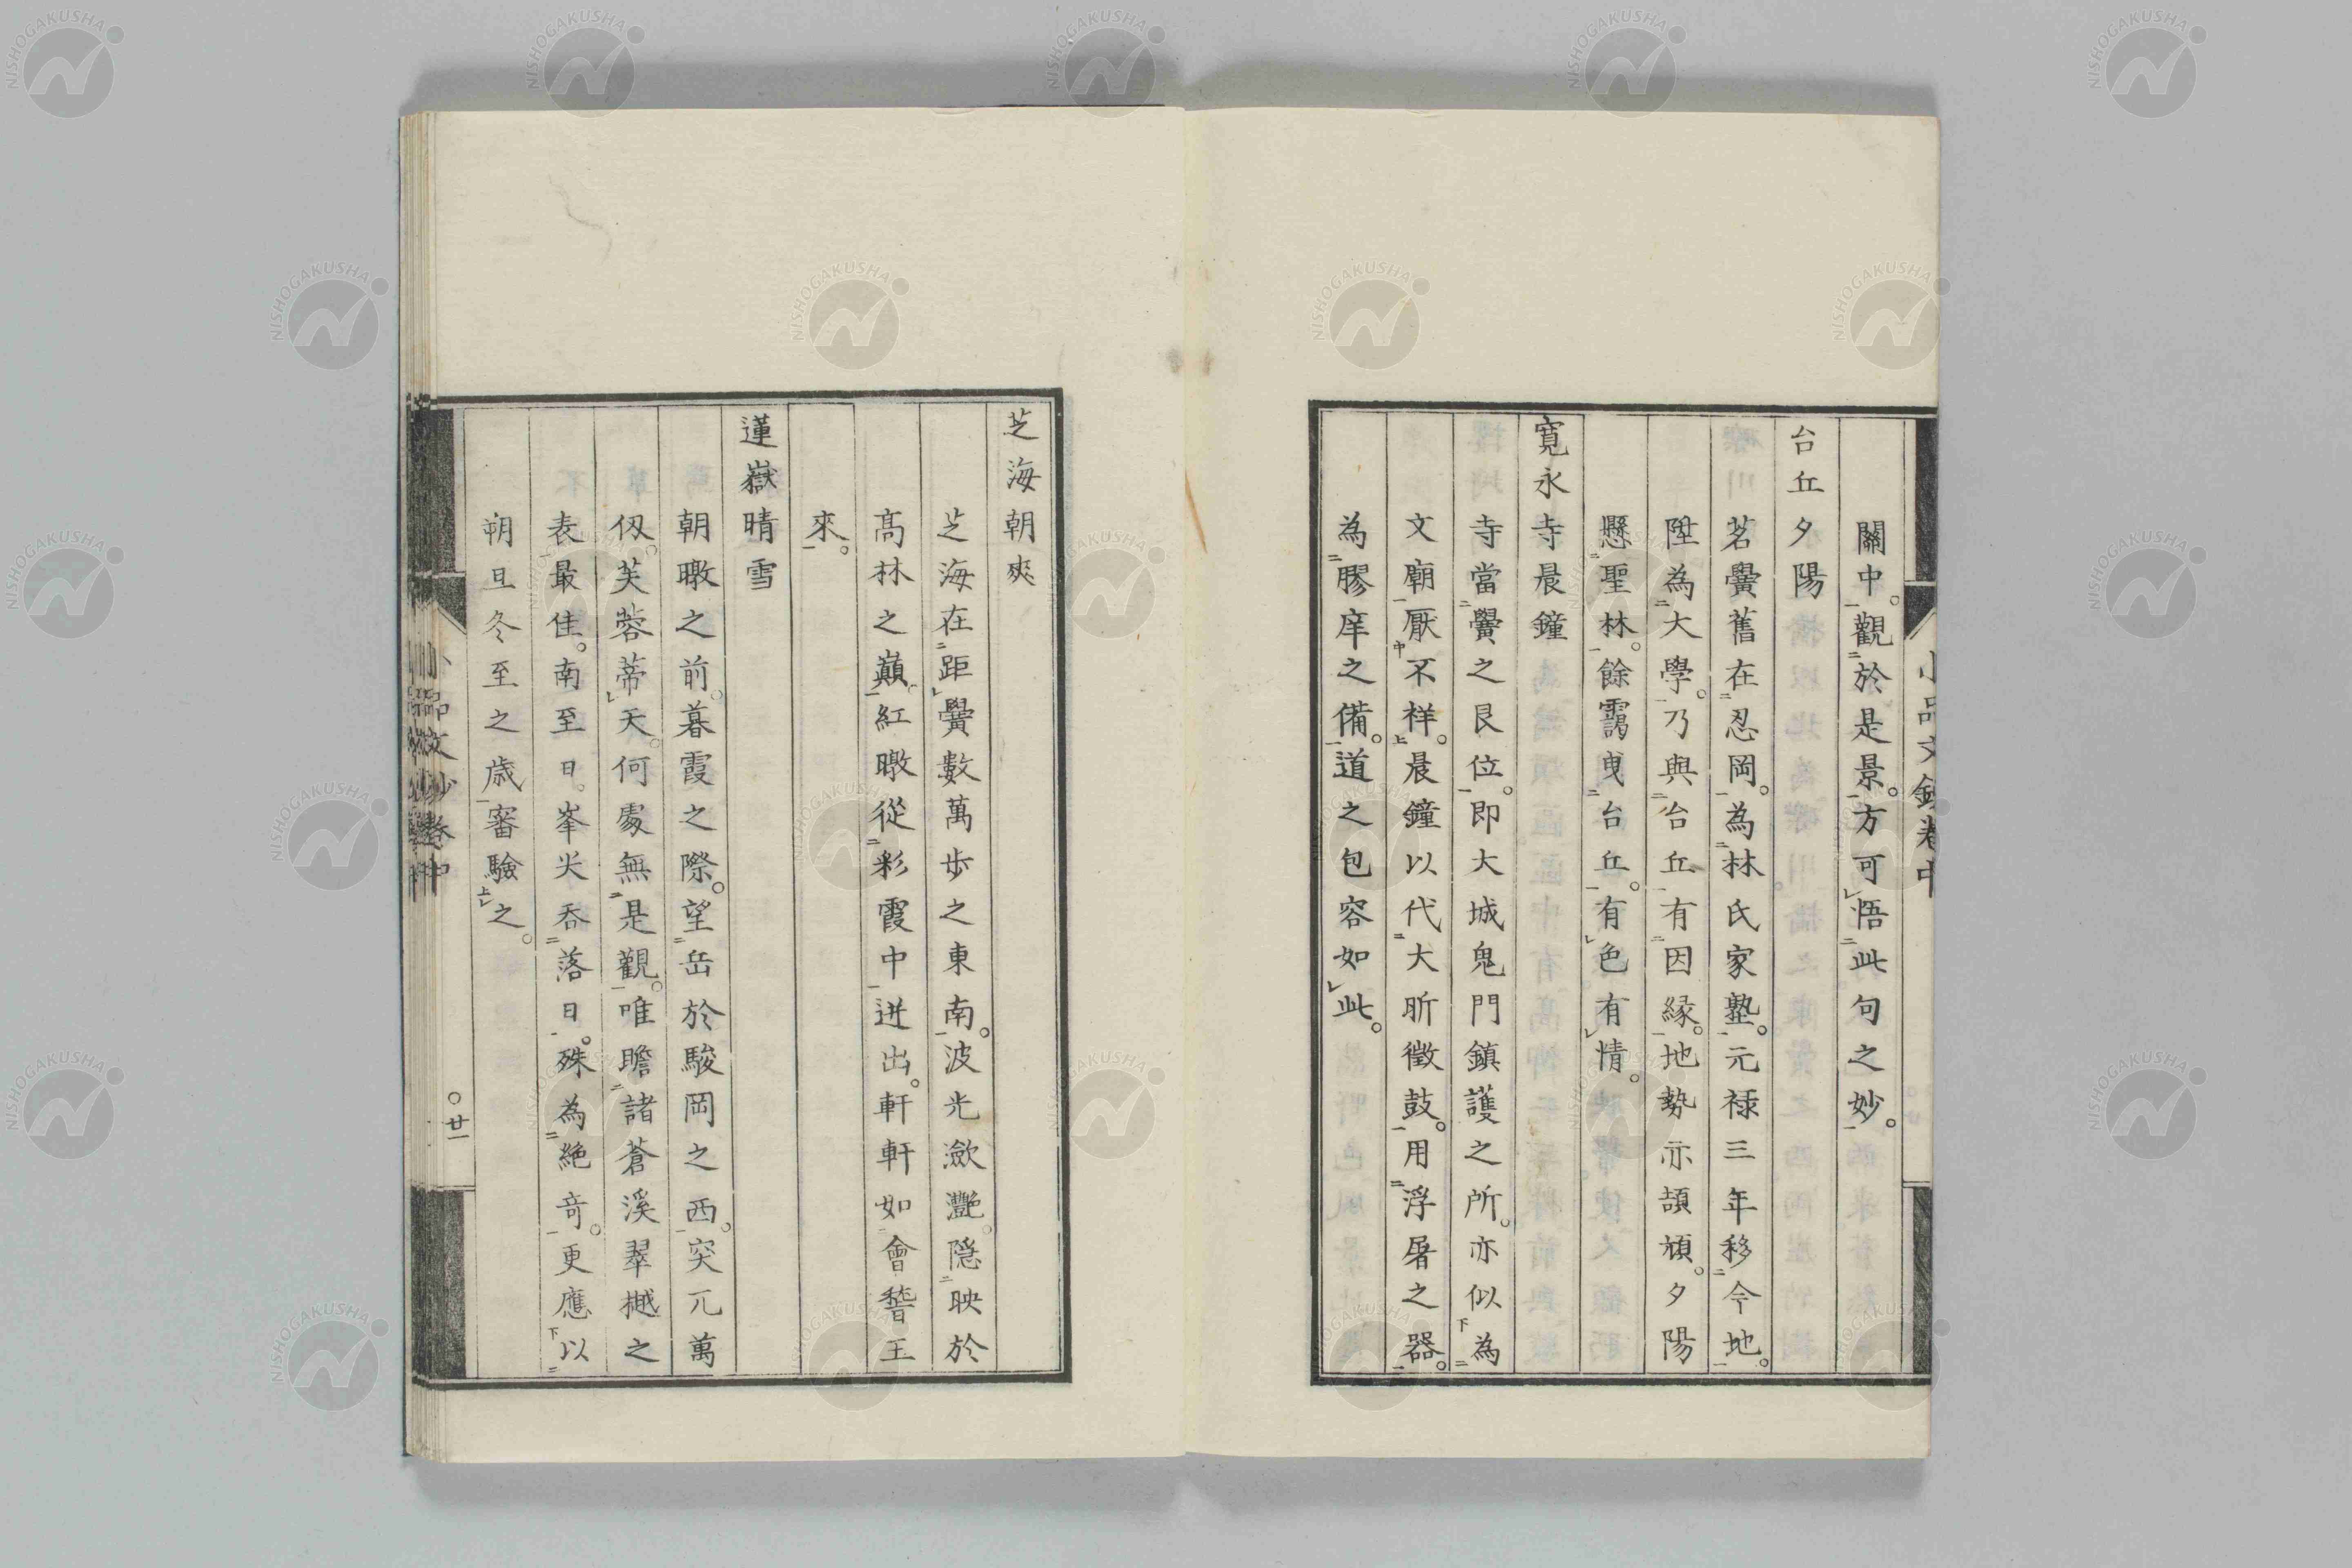 小品文鈔卷中
關中。觀於是景。方可悟此句之妙。
台丘夕陽
茗黌舊在忍岡。為林氏家塾。元祿三年移今地。
陞為大學。乃與台丘有因緣。地勢亦頡頏。夕陽
懸聖林。餘靄曳台丘。有色有情。
寬永寺晨鐘
寺當黌之艮位。即大城鬼門鎮護之所。亦似為
文廟厭不祥。晨鐘以代大昕徵鼓。用浮屠之器。
為膠庠之備。道之包容如此。
芝海朝爽
芝海在距黌數萬步之東南。波光瀲灔。隱映於
高林之巔。紅暾從彩霞中迸出。軒軒如會稽王
來。
蓮嶽晴雪
朝暾之前。暮霞之際。望岳於駿岡之西。突兀萬
仭。芙蓉蒂天。何處無是觀。唯瞻諸蒼溪翠樾之
表最佳。南至日。峯尖吞落日。殊為絕奇。更應以
朔旦冬至之歲審驗之。
小品文鈔卷中
廿一
NISHOGAKUSHA